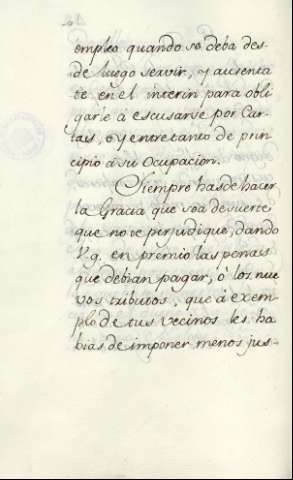 empleo quando se deba des-
de luego servir, y ausenta
te en el interin para obli
garle à escusarse por Car-
tas, ò y entretanto de prin
cipio à su Ocupacion.
Siempre has de hacer
la Gracia que sea de suerte
que no te perjudique, dando
V.g. en premio las penas
que debian pagar, ò los nue
vos tributos, que à exem
plo de tus vecinos les ha
bias de imponer menos jus-